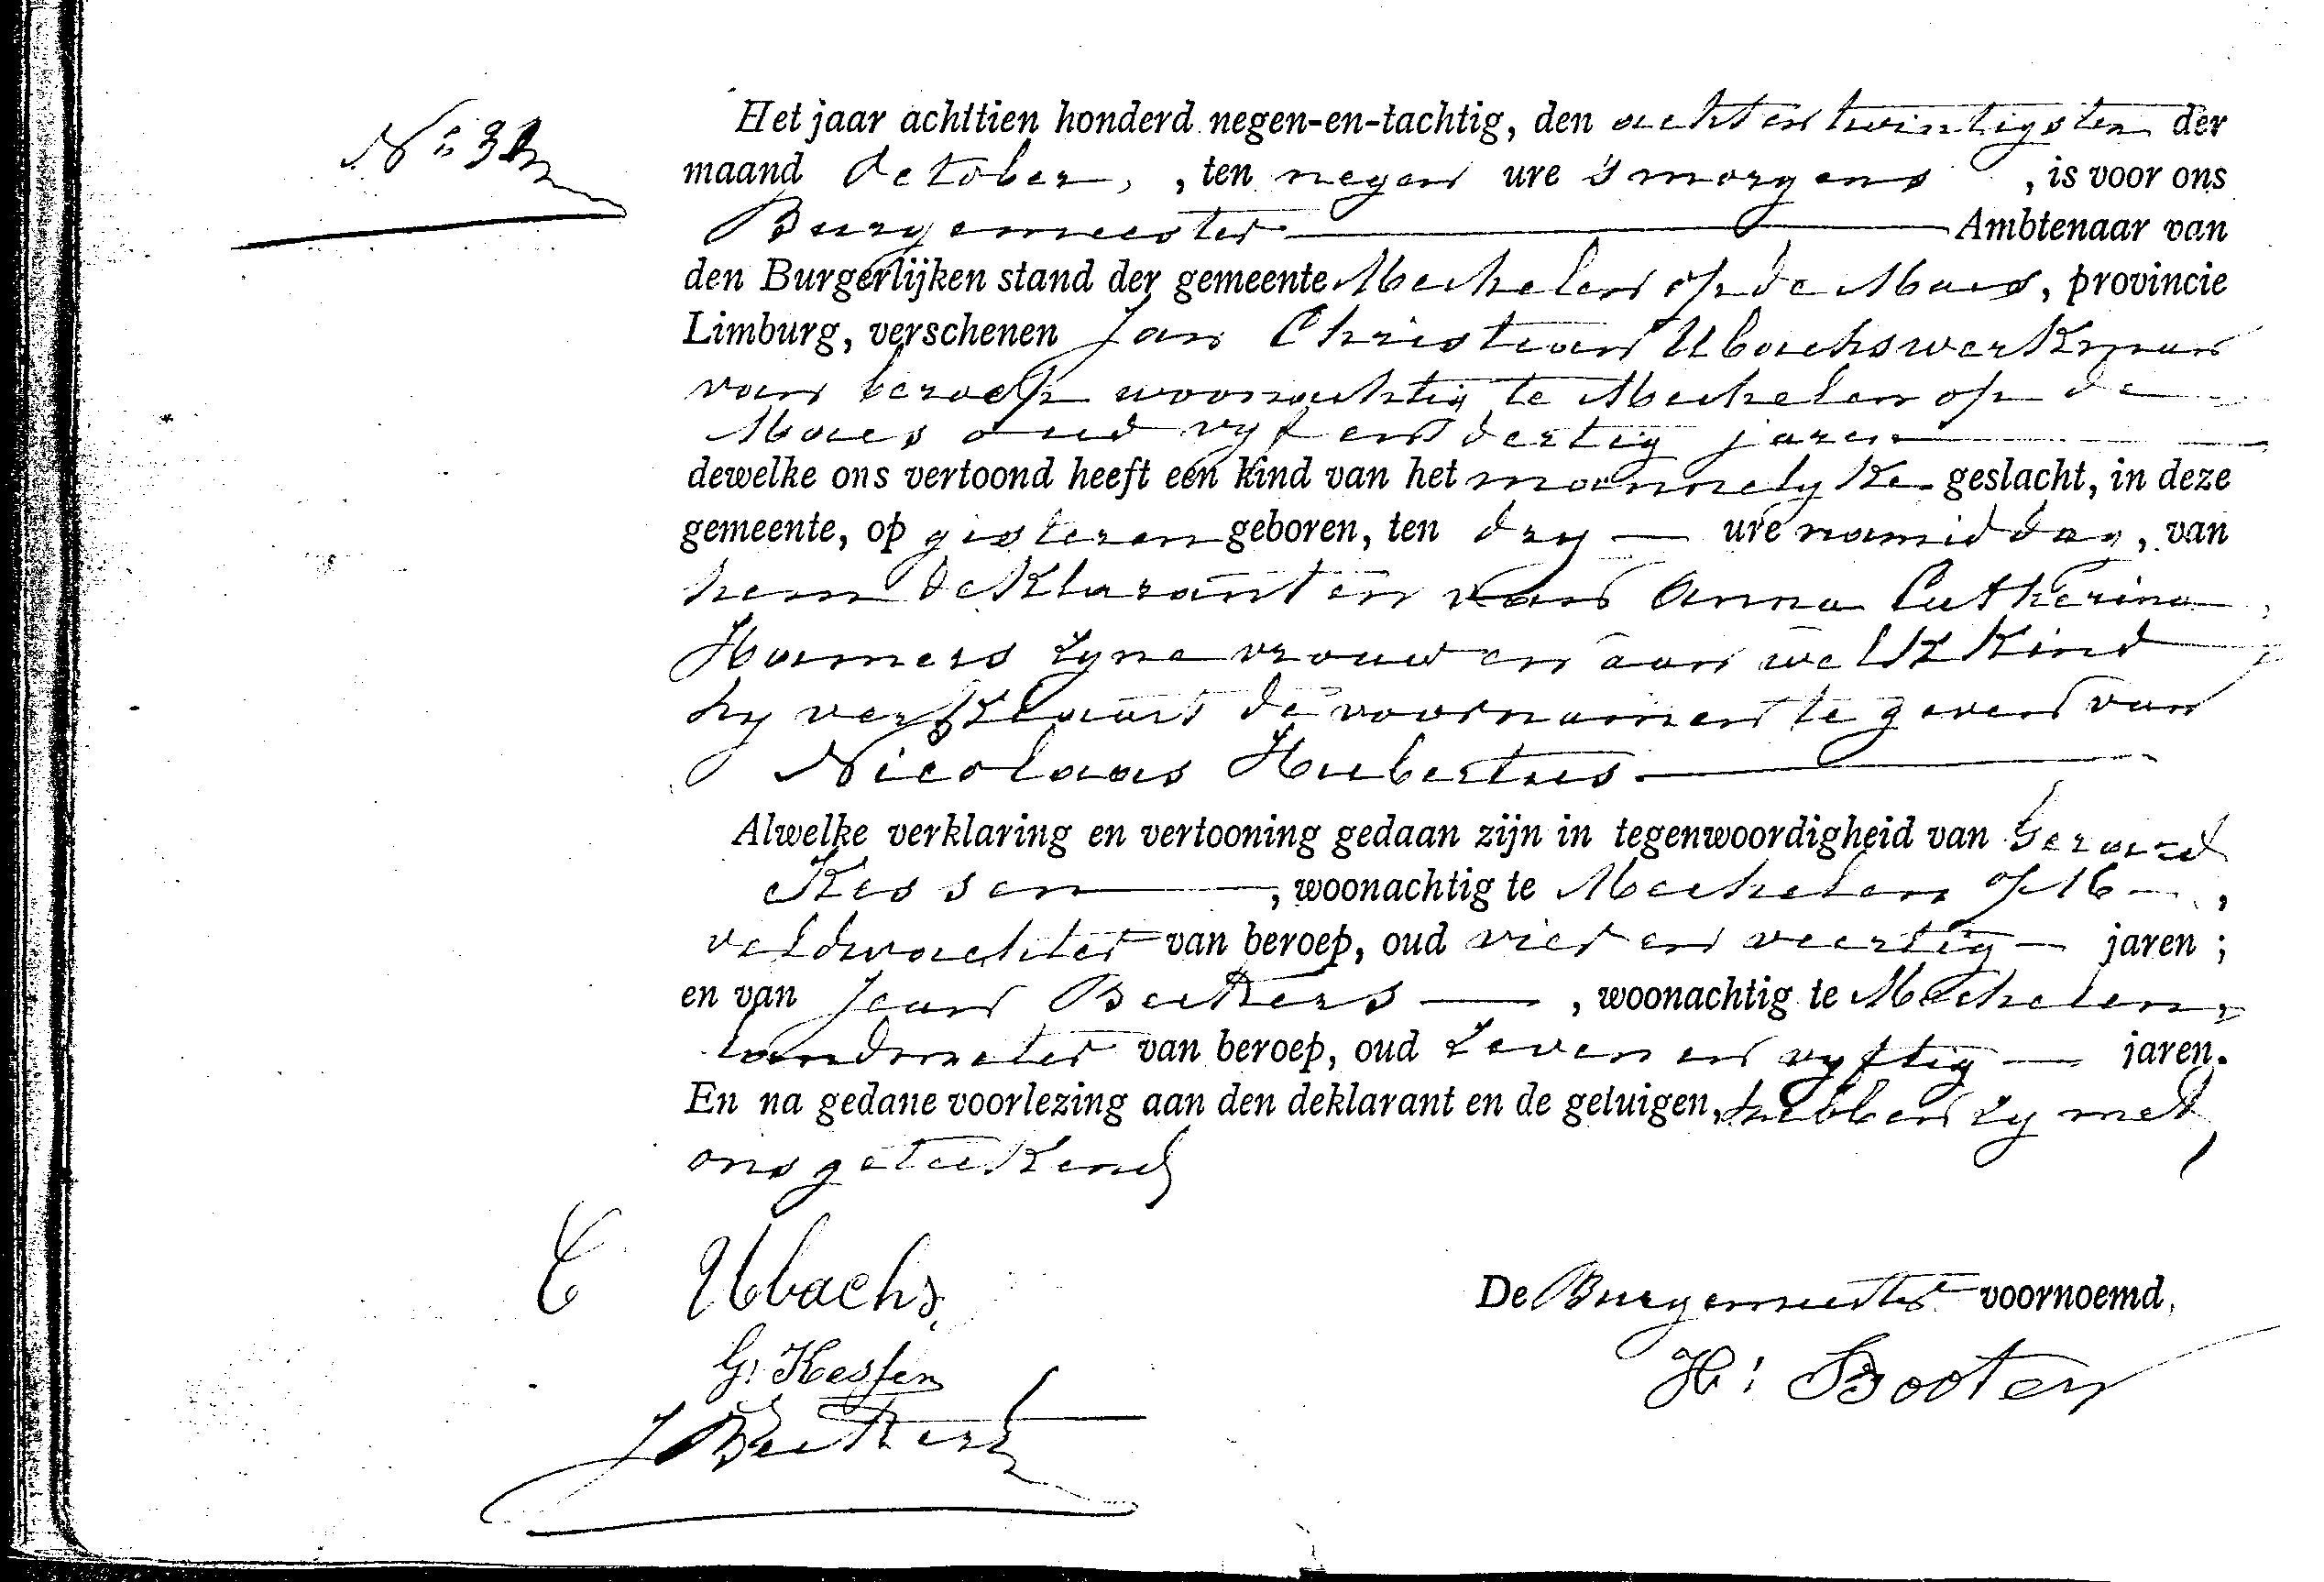 Nº 31
Het jaar achttien honderd negen-en-tachtig, den acht en twintigsten der
maand October, , ten negen ure 's morgens , is voor ons
Burgemeester Ambtenaar van
den Burgerlijken stand der gemeente Mechelen op de Maes, provincie
Limburg, verschenen Jan Christian Ubachs werkman
van beroep woonachtig te Mechelen op de
Maes oud vyf en dertig jaren
dewelke ons vertoond heeft een kind van het mannelyke geslacht, in deze
gemeente, op gisteren geboren, ten dry — ure namiddag, van
hem deklarant en van Anna Catherina
Hamers zyne vrouw en aan welk kind
hy verklaart de voornamen te geven van
Nicolaas Hubertus
Alwelke verklaring en vertooning gedaan zijn in tegenwoordigheid van Gerard
Kessen, woonachtig te Mechelen op M —,
veldwachter van beroep, oud vier en veertig — jaren ;
en van Jean Beckers —, woonachtig te Mechelen,
landmeter van beroep, oud zeven en vyftig — jaren.
En na gedane voorlezing aan den deklarant en de getuigen, hebben zy met
ons geteekend
C Ubachs
De Burgemeester voornoemd,
G. Kessen
H. Booten
J Beckers